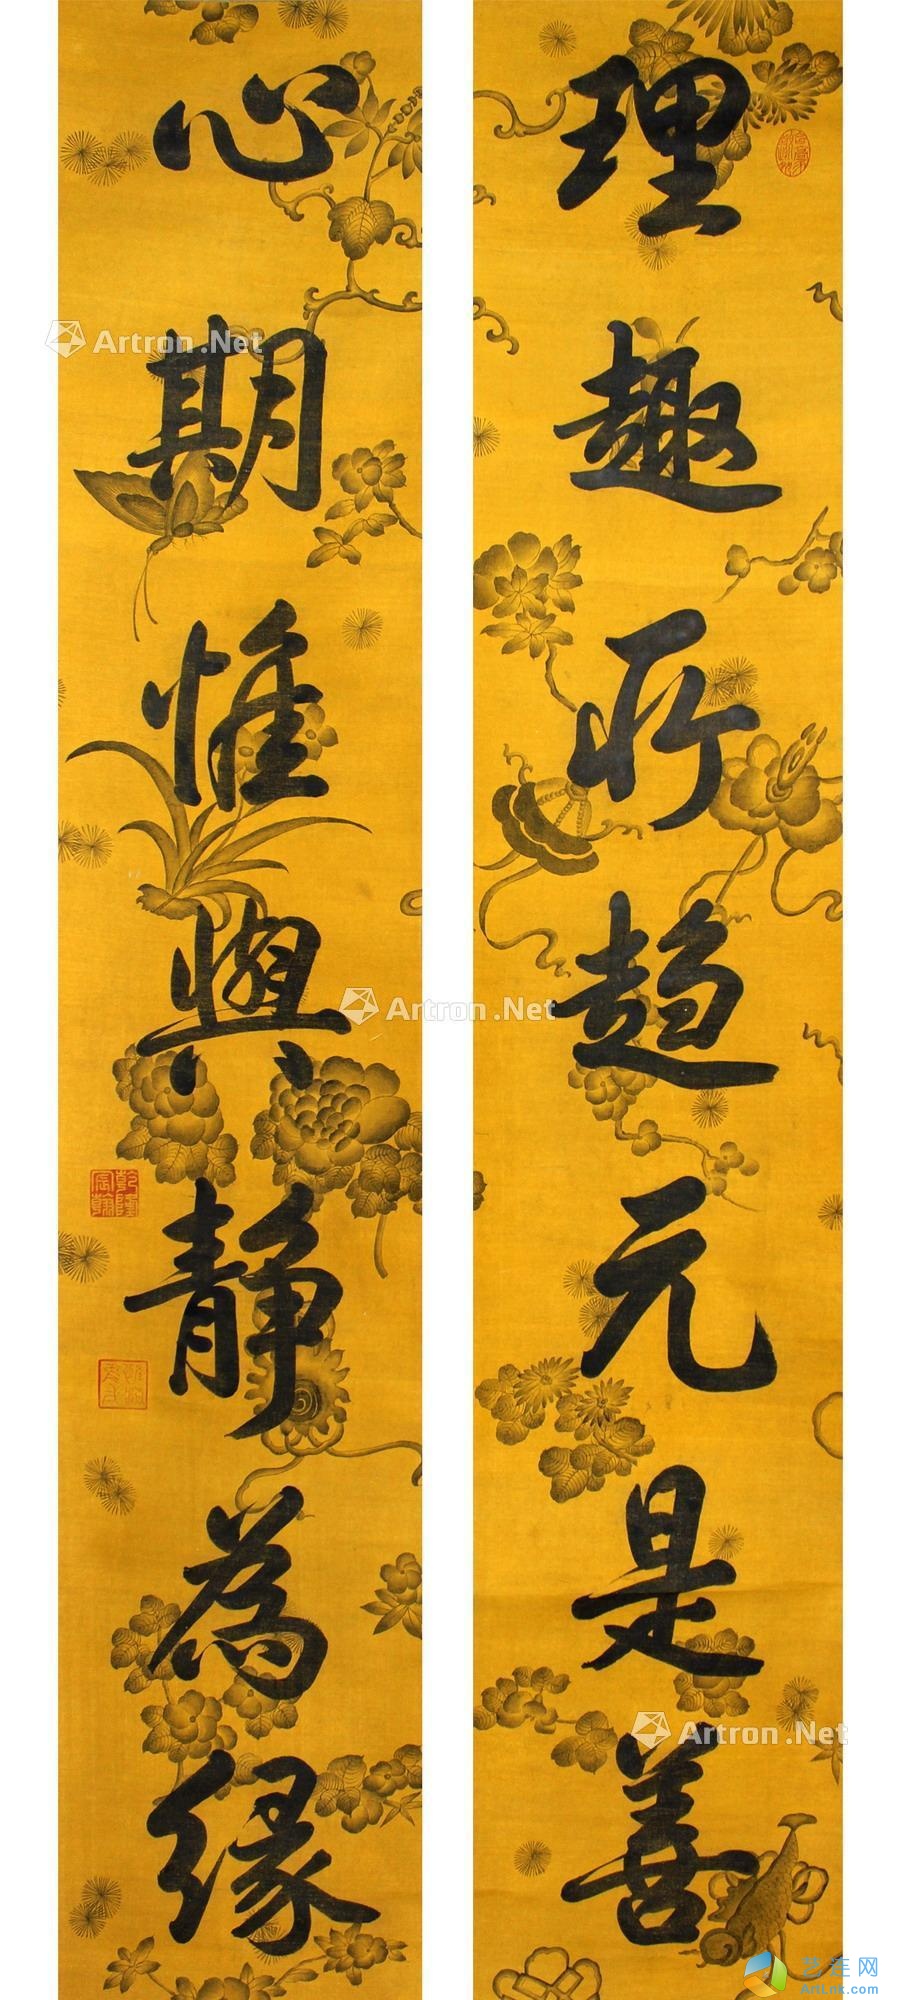 理趣所趋元是善
心期惟與静為缘
乾隆宸翰
Artron.Net
Artron.Net
Artron.Net
艺连网
ArtLnk.com